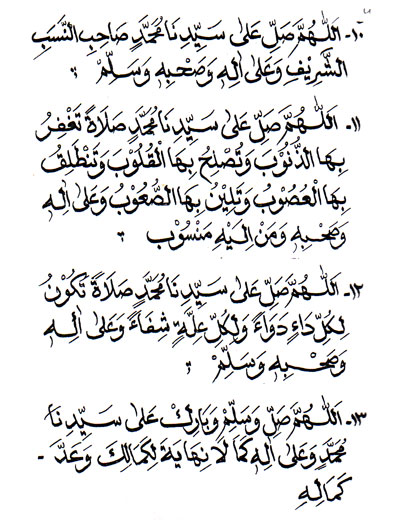 ١٠- اَللّٰهُمَّ صَلِّ عَلٰى سَيِّدِنَا مُحَمَّدٍ صَاحِبِ النَّسَبِ
الشَّرِيْفِ وَعَلٰى اٰلِهٖ وَصَحْبِهٖ وَسَلِّمْ
١١- اَللّٰهُمَّ صَلِّ عَلٰى سَيِّدِنَا مُحَمَّدٍ صَلَاةً تَغْفِرُ
بِهَا الذُّنُوْبَ وَتُصْلِحُ بِهَا الْقُلُوْبَ وَتَنْطَلِقُ
بِهَا الْعُصُوْبُ وَتَلِيْنُ بِهَا الصُّعُوْبُ وَعَلٰى اٰلِهٖ
وَصَحْبِهٖ وَمَنْ اِلَيْهِ مَنْسُوْبٌ
١٢- اَللّٰهُمَّ صَلِّ عَلٰى سَيِّدِنَا مُحَمَّدٍ صَلَاةً تَكُوْنُ
لِكُلِّ دَاءٍ دَوَاءً وَلِكُلِّ عِلَّةٍ شِفَاءً وَعَلٰى اٰلِهٖ
وَصَحْبِهٖ وَسَلِّمْ
١٣- اَللّٰهُمَّ صَلِّ وَسَلِّمْ وَبَارِكْ عَلٰى سَيِّدِنَا
مُحَمَّدٍ وَعَلٰى اٰلِهٖ كَمَا لَا نِهَايَةَ لِكَمَالِكَ وَعَدَّ -
كَمَالِهِ